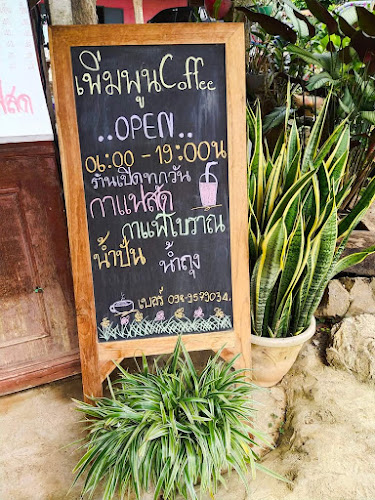 เพิ่มพูนCoffee
..OPEN..
06:00 - 19:00น
ร้านเปิดทุกวัน
กาแฟสด
กาแฟโบราณ
น้ำปั่น
น้ำถุง
เบอร์ 098-9599034